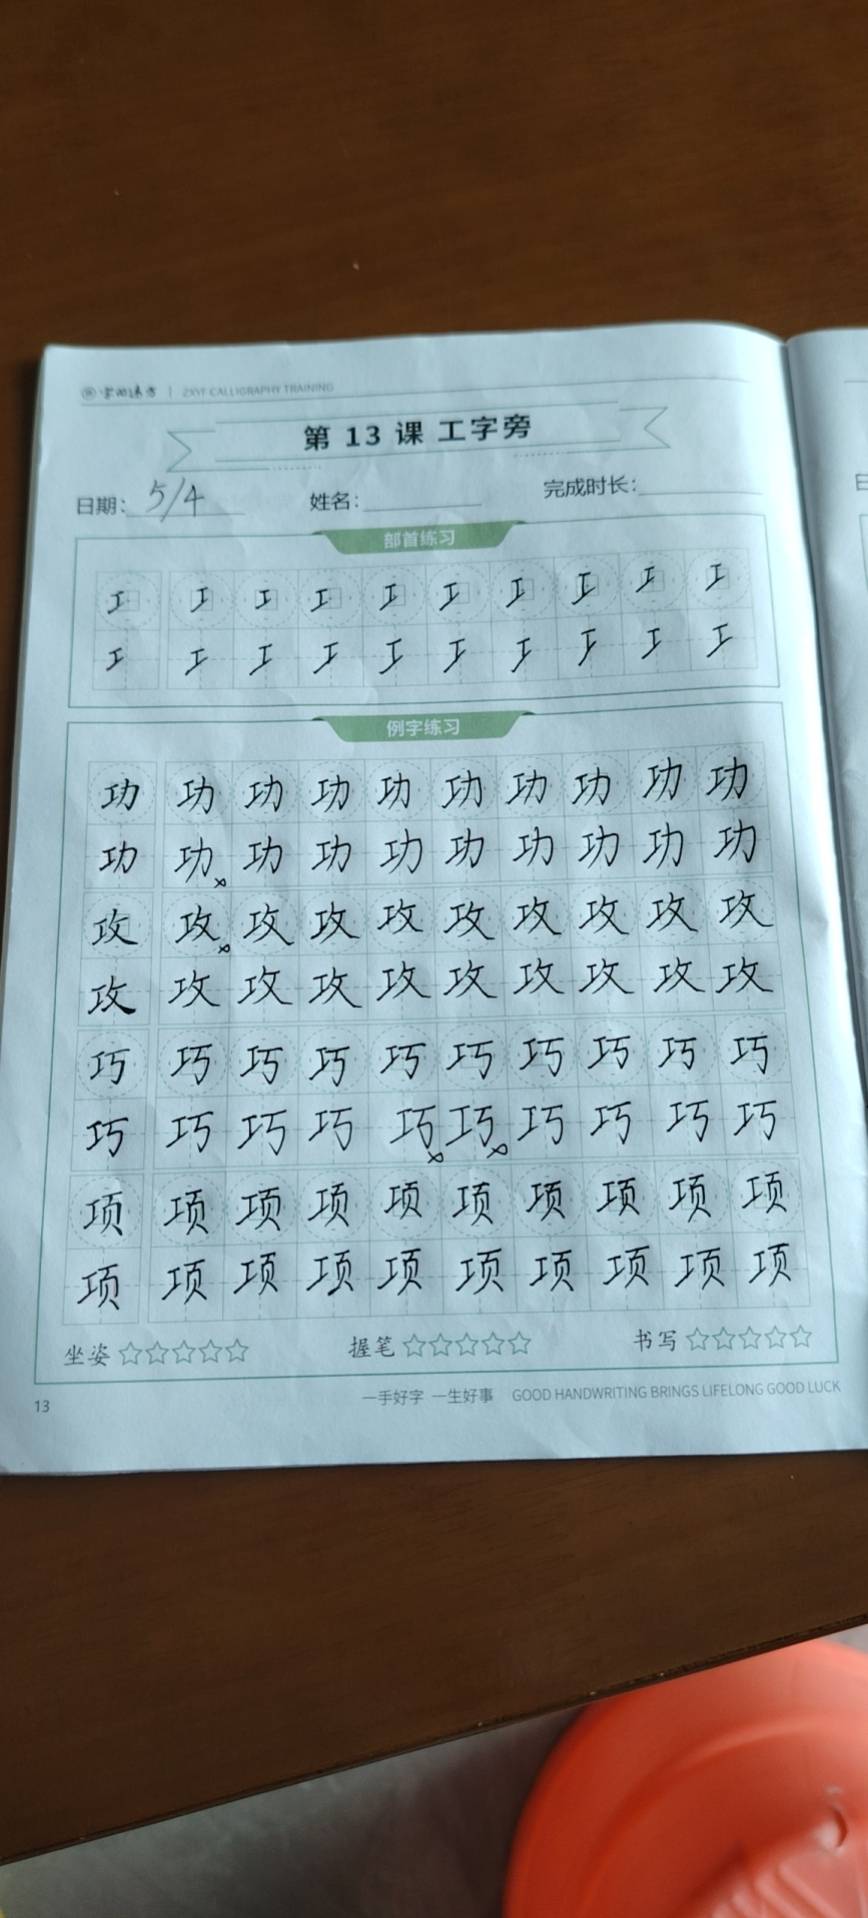 ZXYF CALLIGRAPHY TRAINING
第 13 课 工字旁
日期: 5/4 姓名: 完成时长:
部首练习
工 工 工 工 工 工 工 工 工 工
工 工 工 工 工 工 工 工 工 工
例字练习
功 功 功 功 功 功 功 功 功 功
功 功 功 功 功 功 功 功 功 功
攻 攻 攻 攻 攻 攻 攻 攻 攻 攻
攻 攻 攻 攻 攻 攻 攻 攻 攻 攻
巧 巧 巧 巧 巧 巧 巧 巧 巧 巧
巧 巧 巧 巧 巧 巧 巧 巧 巧 巧
项 项 项 项 项 项 项 项 项 项
项 项 项 项 项 项 项 项 项 项
坐姿 ☆☆☆☆☆ 握笔 ☆☆☆☆☆ 书写 ☆☆☆☆☆
13 一手好字 一生好事 GOOD HANDWRITING BRINGS LIFELONG GOOD LUCK